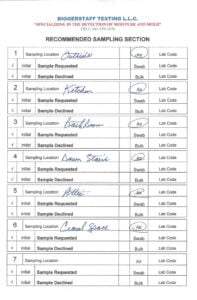 BIGGERSTAFF TESTING L.L.C.
"SPECIALIZING IN THE DETECTION OF MOISTURE AND MOLD"
RECOMMENDED SAMPLING SECTION
1 Sampling Location Outside Air Lab Code
√ Initial Sample Requested Swab Lab Code
√ Initial Sample Declined Bulk Lab Code
2 Sampling Location Kitchen Air Lab Code
√ Initial Sample Requested Swab Lab Code
√ Initial Sample Declined Bulk Lab Code
3 Sampling Location Air Lab Code
√ Initial Sample Requested Swab Lab Code
√ Initial Sample Declined Bulk Lab Code
4 Sampling Location Down Stairs Air Lab Code
√ Initial Sample Requested Swab Lab Code
√ Initial Sample Declined Bulk Lab Code
5 Sampling Location Attic Air Lab Code
√ Initial Sample Requested Swab Lab Code
√ Initial Sample Declined Bulk Lab Code
6 Sampling Location Crawl Space Air Lab Code
√ Initial Sample Requested Swab Lab Code
√ Initial Sample Declined Bulk Lab Code
7 Sampling Location Air Lab Code
√ Initial Sample Requested Swab Lab Code
√ Initial Sample Declined Bulk Lab Code